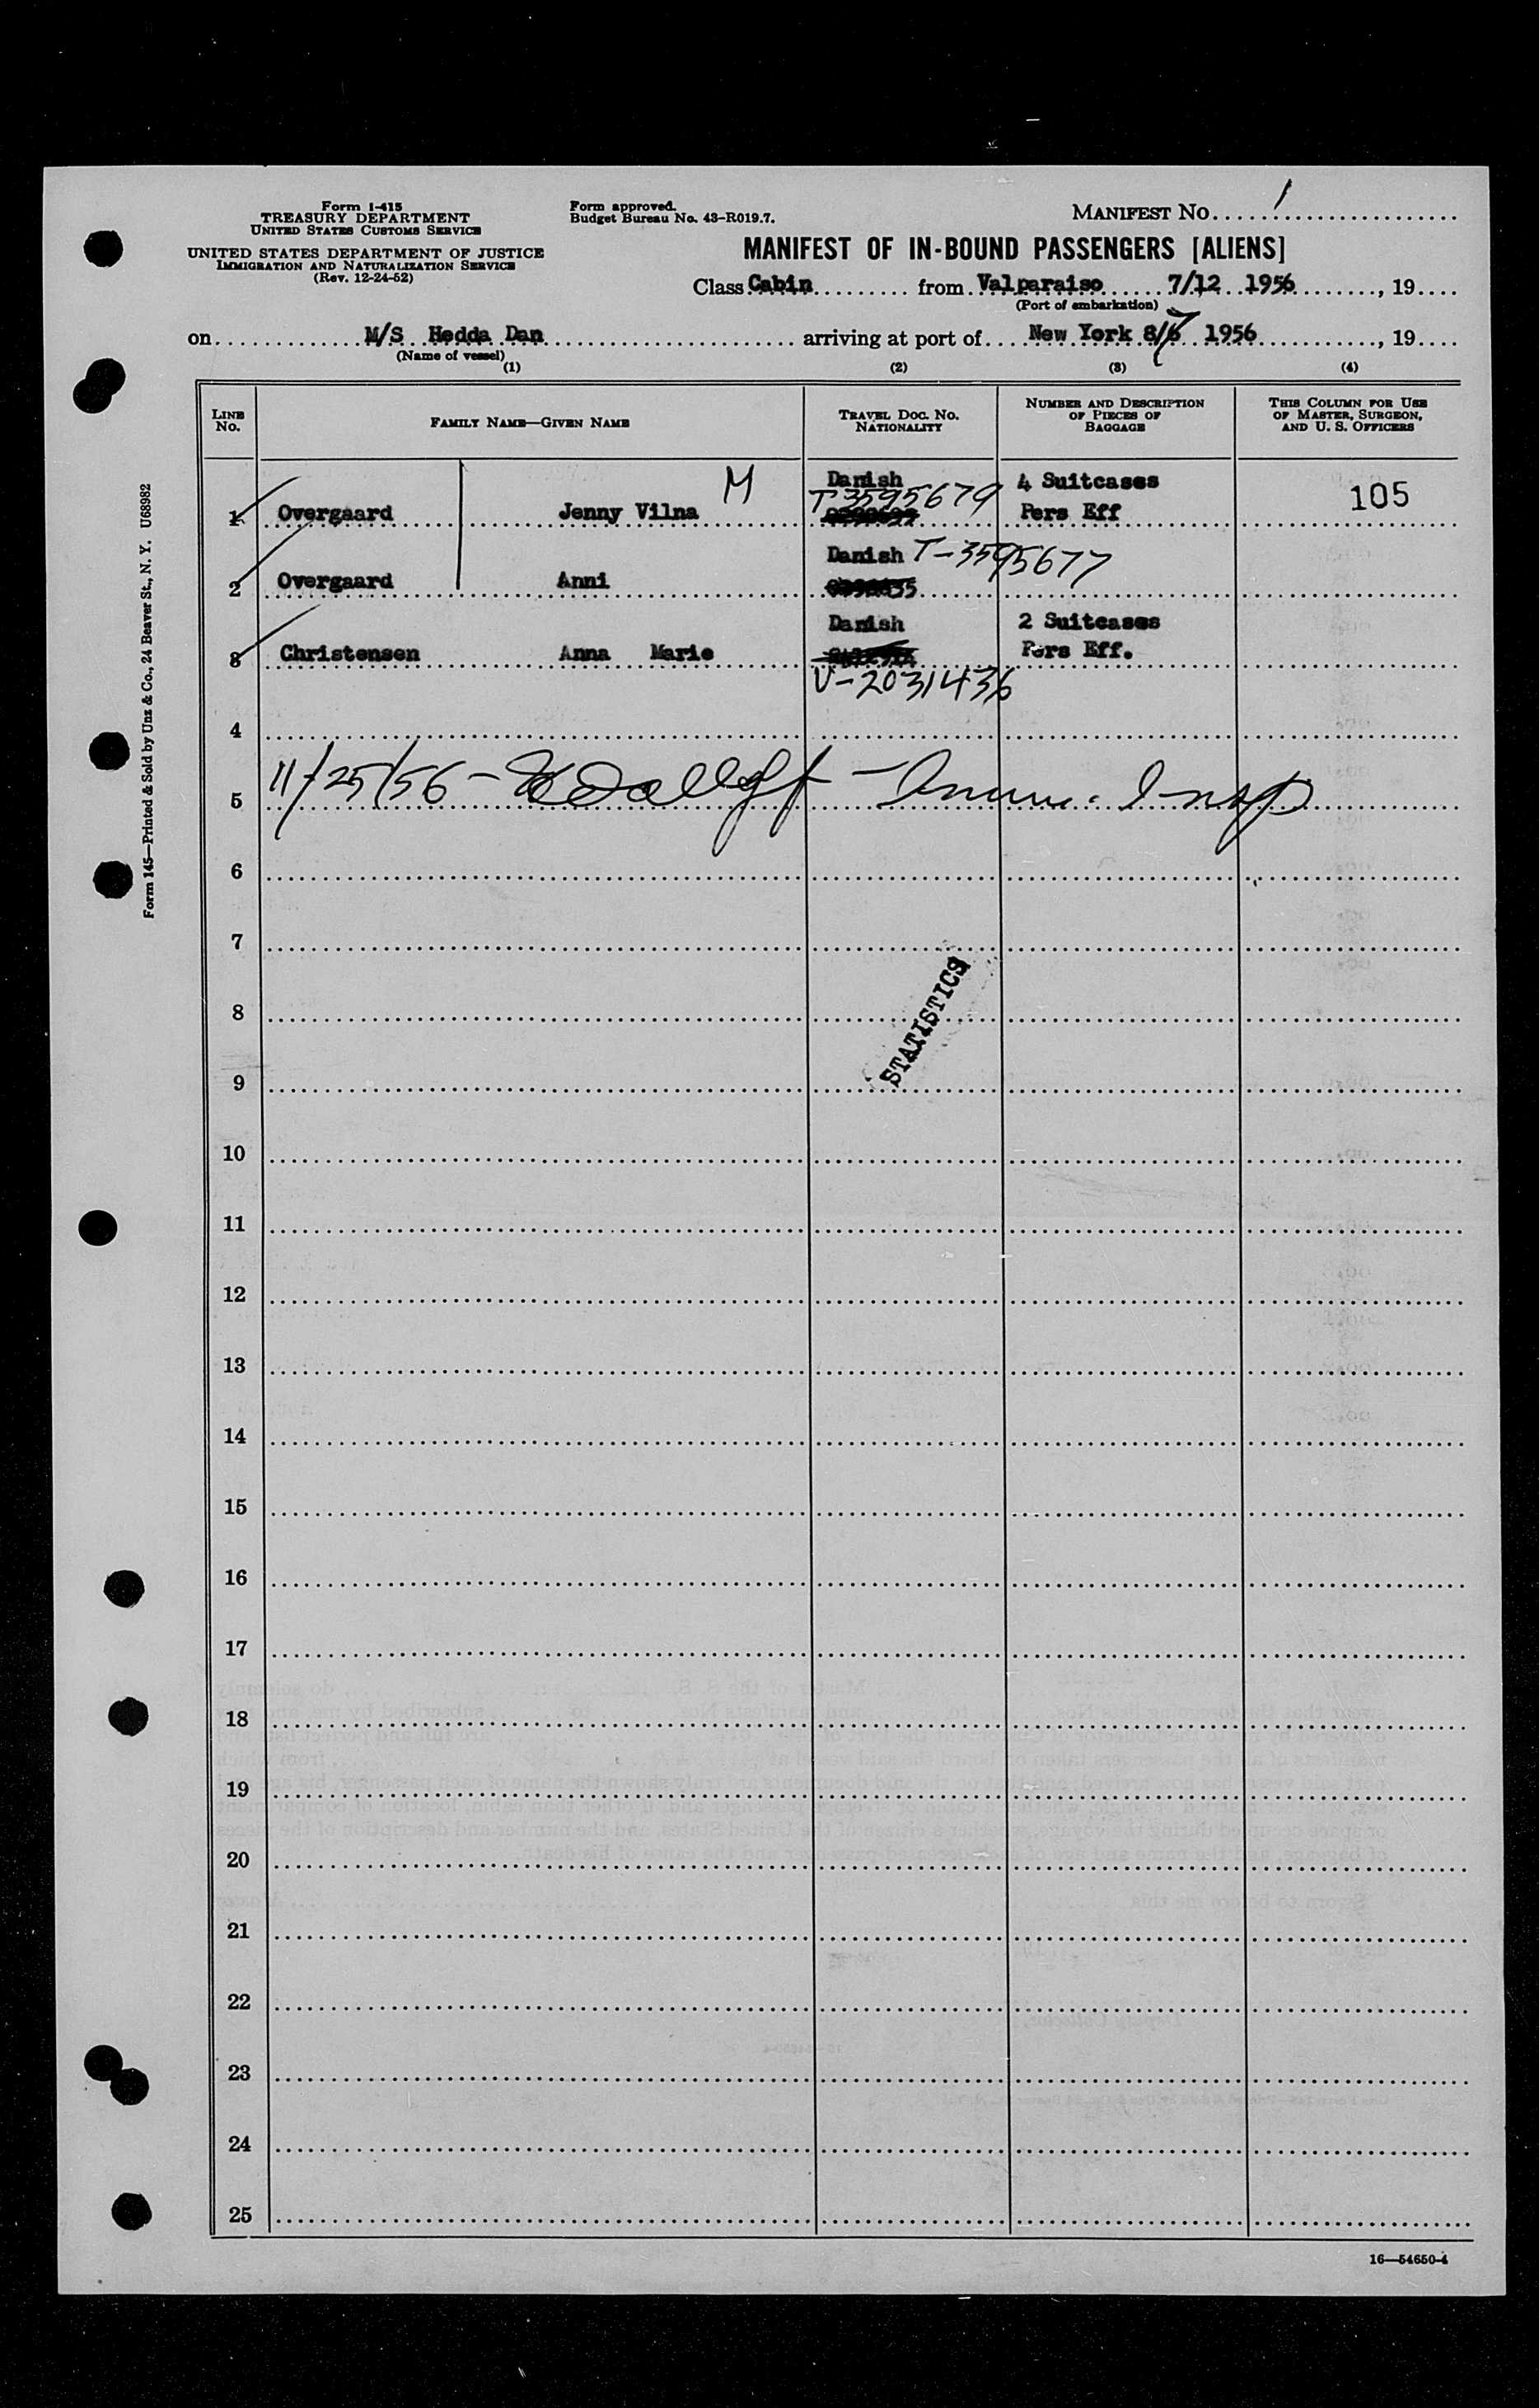 Form I-415
TREASURY DEPARTMENT
UNITED STATES CUSTOMS SERVICE
UNITED STATES DEPARTMENT OF JUSTICE
IMMIGRATION AND NATURALIZATION SERVICE
(Rev. 12-24-52)
Form approved.
Budget Bureau No. 43-R019.7.
MANIFEST NO. 1
MANIFEST OF IN-BOUND PASSENGERS [ALIENS]
Class Cabin from Valparaiso 7/12 1956, 19
(Port of embarkation)
on M/S Hedda Dan arriving at port of New York 8/7 1956, 19
(Name of vessel)
(1) (2) (3) (4)
LINE NO.
FAMILY NAME—GIVEN NAME
TRAVEL DOC. NO.
NATIONALITY
NUMBER AND DESCRIPTION
OF PIECES OF
BAGGAGE
THIS COLUMN FOR USE
OF MASTER, SURGEON,
AND U. S. OFFICERS
M Danish 4 Suitcases
T3595679 105
1 Overgaard Jenny Vilna Pers Eff
Danish T-3595677
2 Overgaard Anni
Danish 2 Suitcases
3 Christensen Anna Marie Pers Eff.
V-2031436
4
11/25/56 - Imm. Insp
5
6
7
STATISTICS
8
9
10
11
12
13
14
15
16
17
18
19
20
21
22
23
24
25
16—54650-4
Form 145—Printed & Sold by Unz & Co., 24 Beaver St., N. Y. U68982